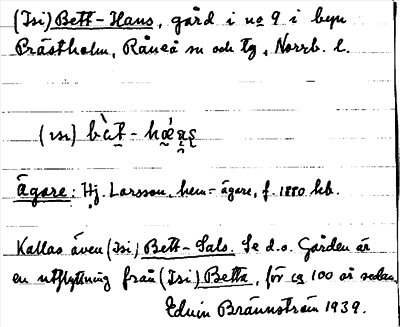 (Isi) Bett-Hans, gård i no 9 i byn
Prästholm, Råneå sn och tg, Norrb. l.
(ısı) bàt-
Ägare: Hj. Larsson, hem.-ägare, f. 1880 hb.
Kallas även (Isi) Bett-Sals. Se d.o. Gården är
en utflyttning från (Isi) Betta, för ca 100 år sedan.
Edvin Brännström 1939.